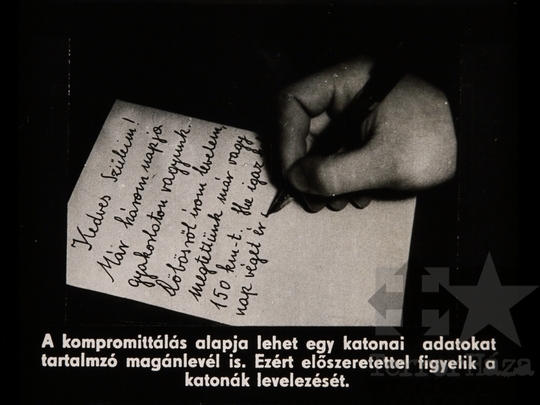 Kedves Szüleim!
Már három napja
gyakorlaton vagyunk.
Döbösről írom levelem,
megtettünk már vagy
150 km-t. Ha igaz
nap véget ér
A kompromittálás alapja lehet egy katonai adatokat
tartalmzó magánlevél is. Ezért előszeretettel figyelik a
katonák levelezését.
Terror Háza